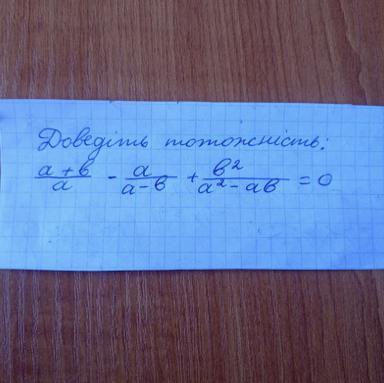 Доведіть тотожність:
\frac{a+b}{a} - \frac{a}{a-b} + \frac{b^2}{a^2-ab} = 0